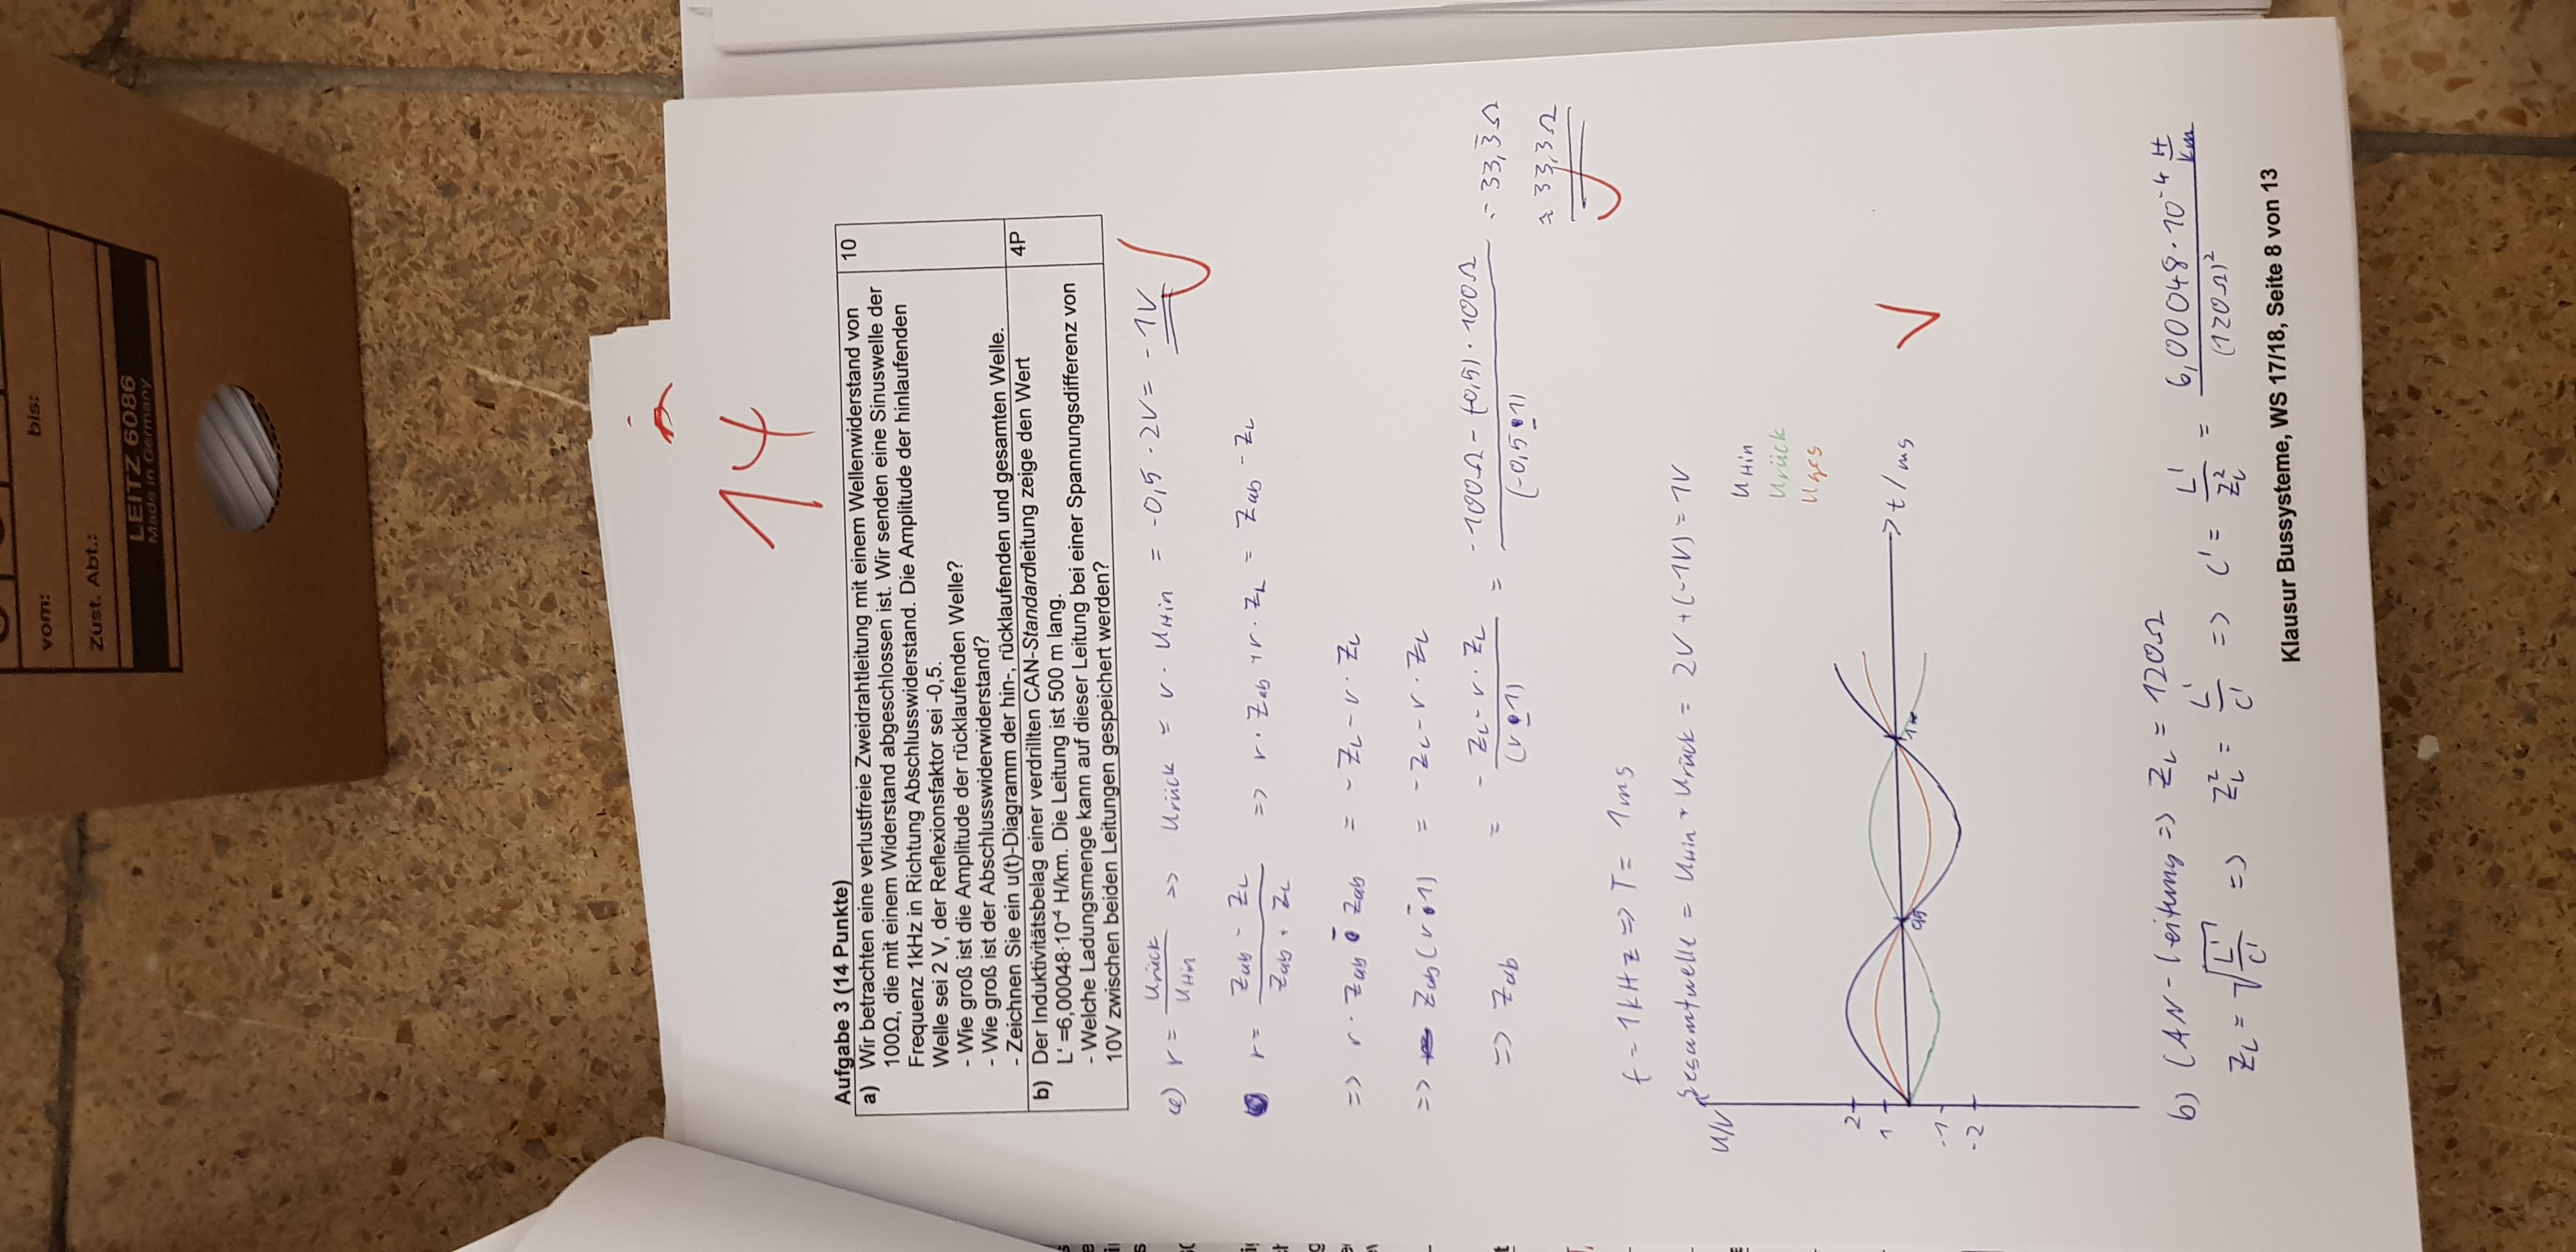 vom:
bis:
Zust. Abt.:
LEITZ 6086
Made in Germany
14
Aufgabe 3 (14 Punkte)
a) Wir betrachten eine verlustfreie Zweidrahtleitung mit einem Wellenwiderstand von
10
100Ω, die mit einem Widerstand abgeschlossen ist. Wir senden eine Sinuswelle der
Frequenz 1kHz in Richtung Abschlusswiderstand. Die Amplitude der hinlaufenden
Welle sei 2 V, der Reflexionsfaktor sei -0,5.
- Wie groß ist die Amplitude der rücklaufenden Welle?
- Wie groß ist der Abschlusswiderwiderstand?
- Zeichnen Sie ein u(t)-Diagramm der hin-, rücklaufenden und gesamten Welle.
b) Der Induktivitätsbelag einer verdrillten CAN-Standardleitung zeige den Wert
4P
L' =6,00048·10⁻⁴ H/km. Die Leitung ist 500 m lang.
- Welche Ladungsmenge kann auf dieser Leitung bei einer Spannungsdifferenz von
10V zwischen beiden Leitungen gespeichert werden?
a) r = Urück / UHin => Urück = r · UHin = -0,5 · 2V = -1V
r = (Zab - ZL) / (Zab + ZL) => r · Zab + r · ZL = Zab - ZL
=> r · Zab - Zab = - ZL - r · ZL
=> Zab (r - 1) = - ZL - r · ZL
=> Zab = (- ZL - r · ZL) / (r - 1) = (-100Ω - (-0,5) · 100Ω) / (-0,5 - 1) = 33,3̄Ω
≈ 33,3Ω
f = 1kHz => T = 1ms
Gesamtwelle = UHin + Urück = 2V + (-1V) = 1V
U/V
UHin
Urück
Uges
2
1
t/ms
0,5
1
-1
-2
b) CAN-Leitung => ZL = 120Ω
ZL = √(L'/C') => ZL² = L'/C' => C' = L'/ZL² = (6,00048·10⁻⁴ H/km) / (120Ω)²
Klausur Bussysteme, WS 17/18, Seite 8 von 13